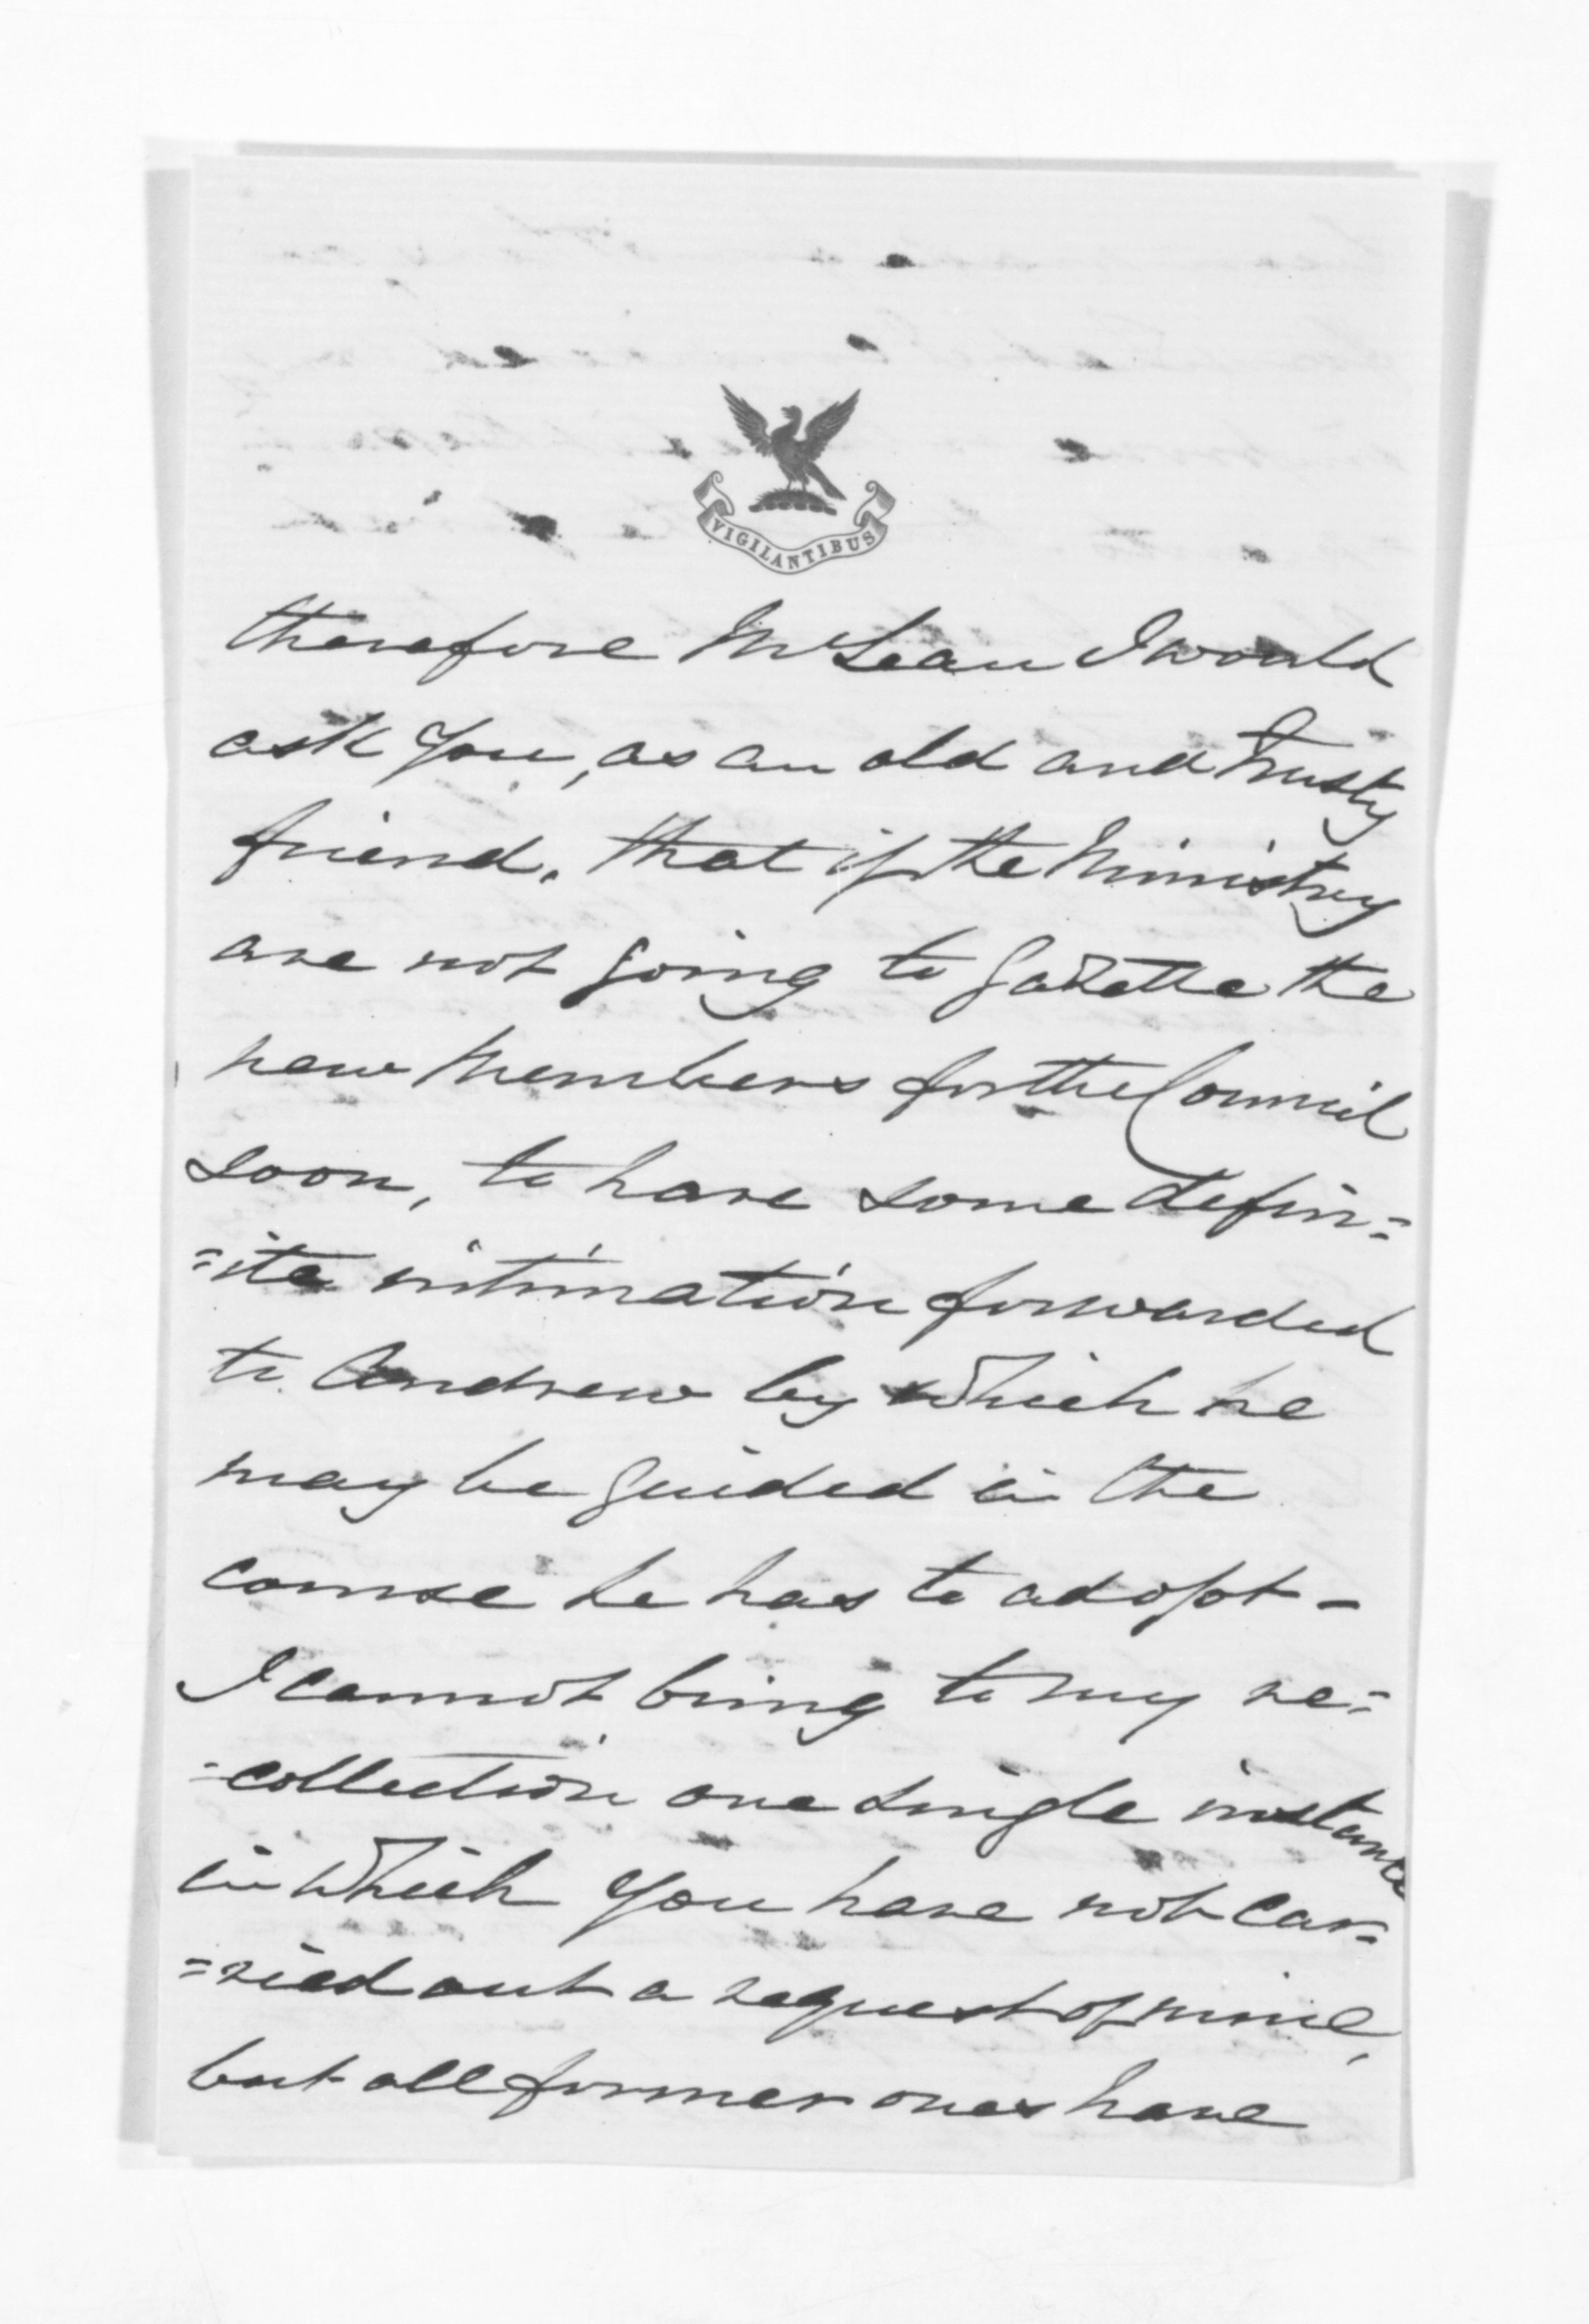 VIGILANTIBUS
therefore McLean I would
ask you, as an old and trusty
friend, that if the Ministry
are not going to gazette the
new Members for the Council
soon, to have some defin=
=ite intimation forwarded
to Andrew by which he
may be guided in the
course he has to adopt -
I cannot bring to my re=
=collection one single instance
in which you have not car=
=ried out a request of mine,
but all former ones have